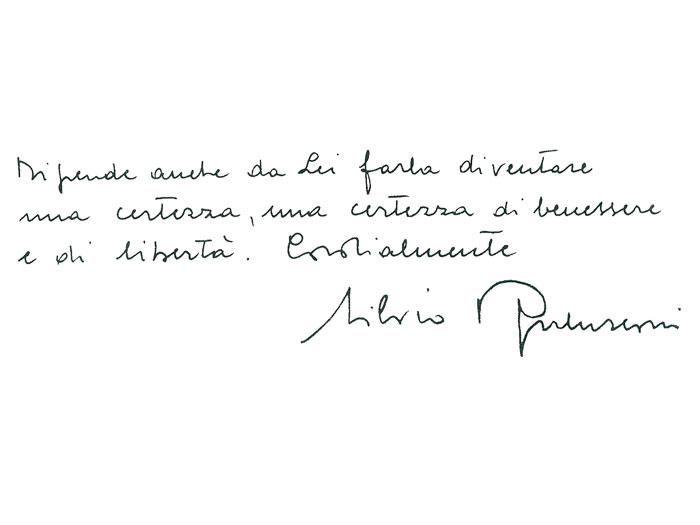 Dipende anche da Lei farla diventare
una certezza, una certezza di benessere
e di libertà. Cordialmente
Silvio Berlusconi